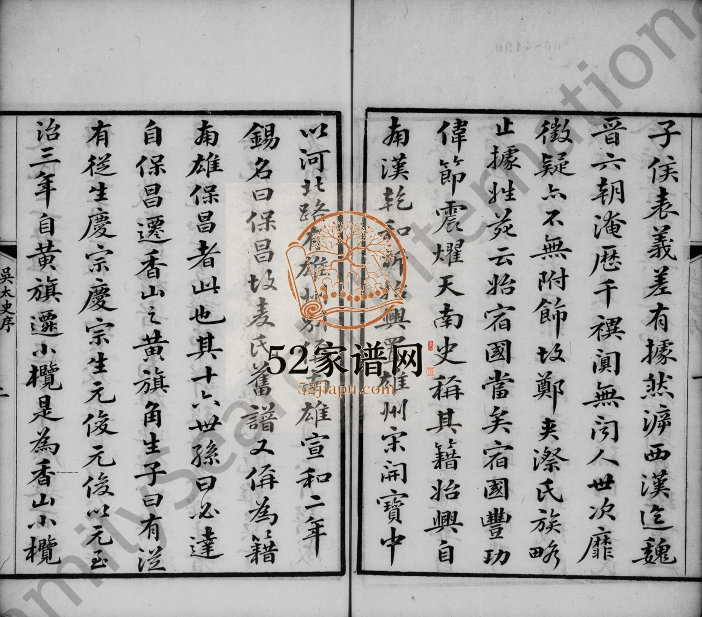 子侯表義差有據然漭西漢迄魏
晉六朝淹歷千禩闃無聞人世次靡
徵疑亦不無附飾故鄭夾漈氏族略
止據姓苑云始宿國當矣宿國豐功
偉節震耀天南史稱其籍始興自
南漢乾和 始興置雄州宋開寶中
以河北路有雄州 雄宣和二年
錫名曰保昌故麦氏舊譜又偁為籍
南雄保昌者此也其十六世孫曰必達
自保昌遷香山之黄旗角生子曰有從
有從生慶宗慶宗生元俊元俊以元至
治三年自黄旗遷小欖是為香山小欖
吳太史序
一
二
52家谱网
52jiapu.com
FamilySearch International